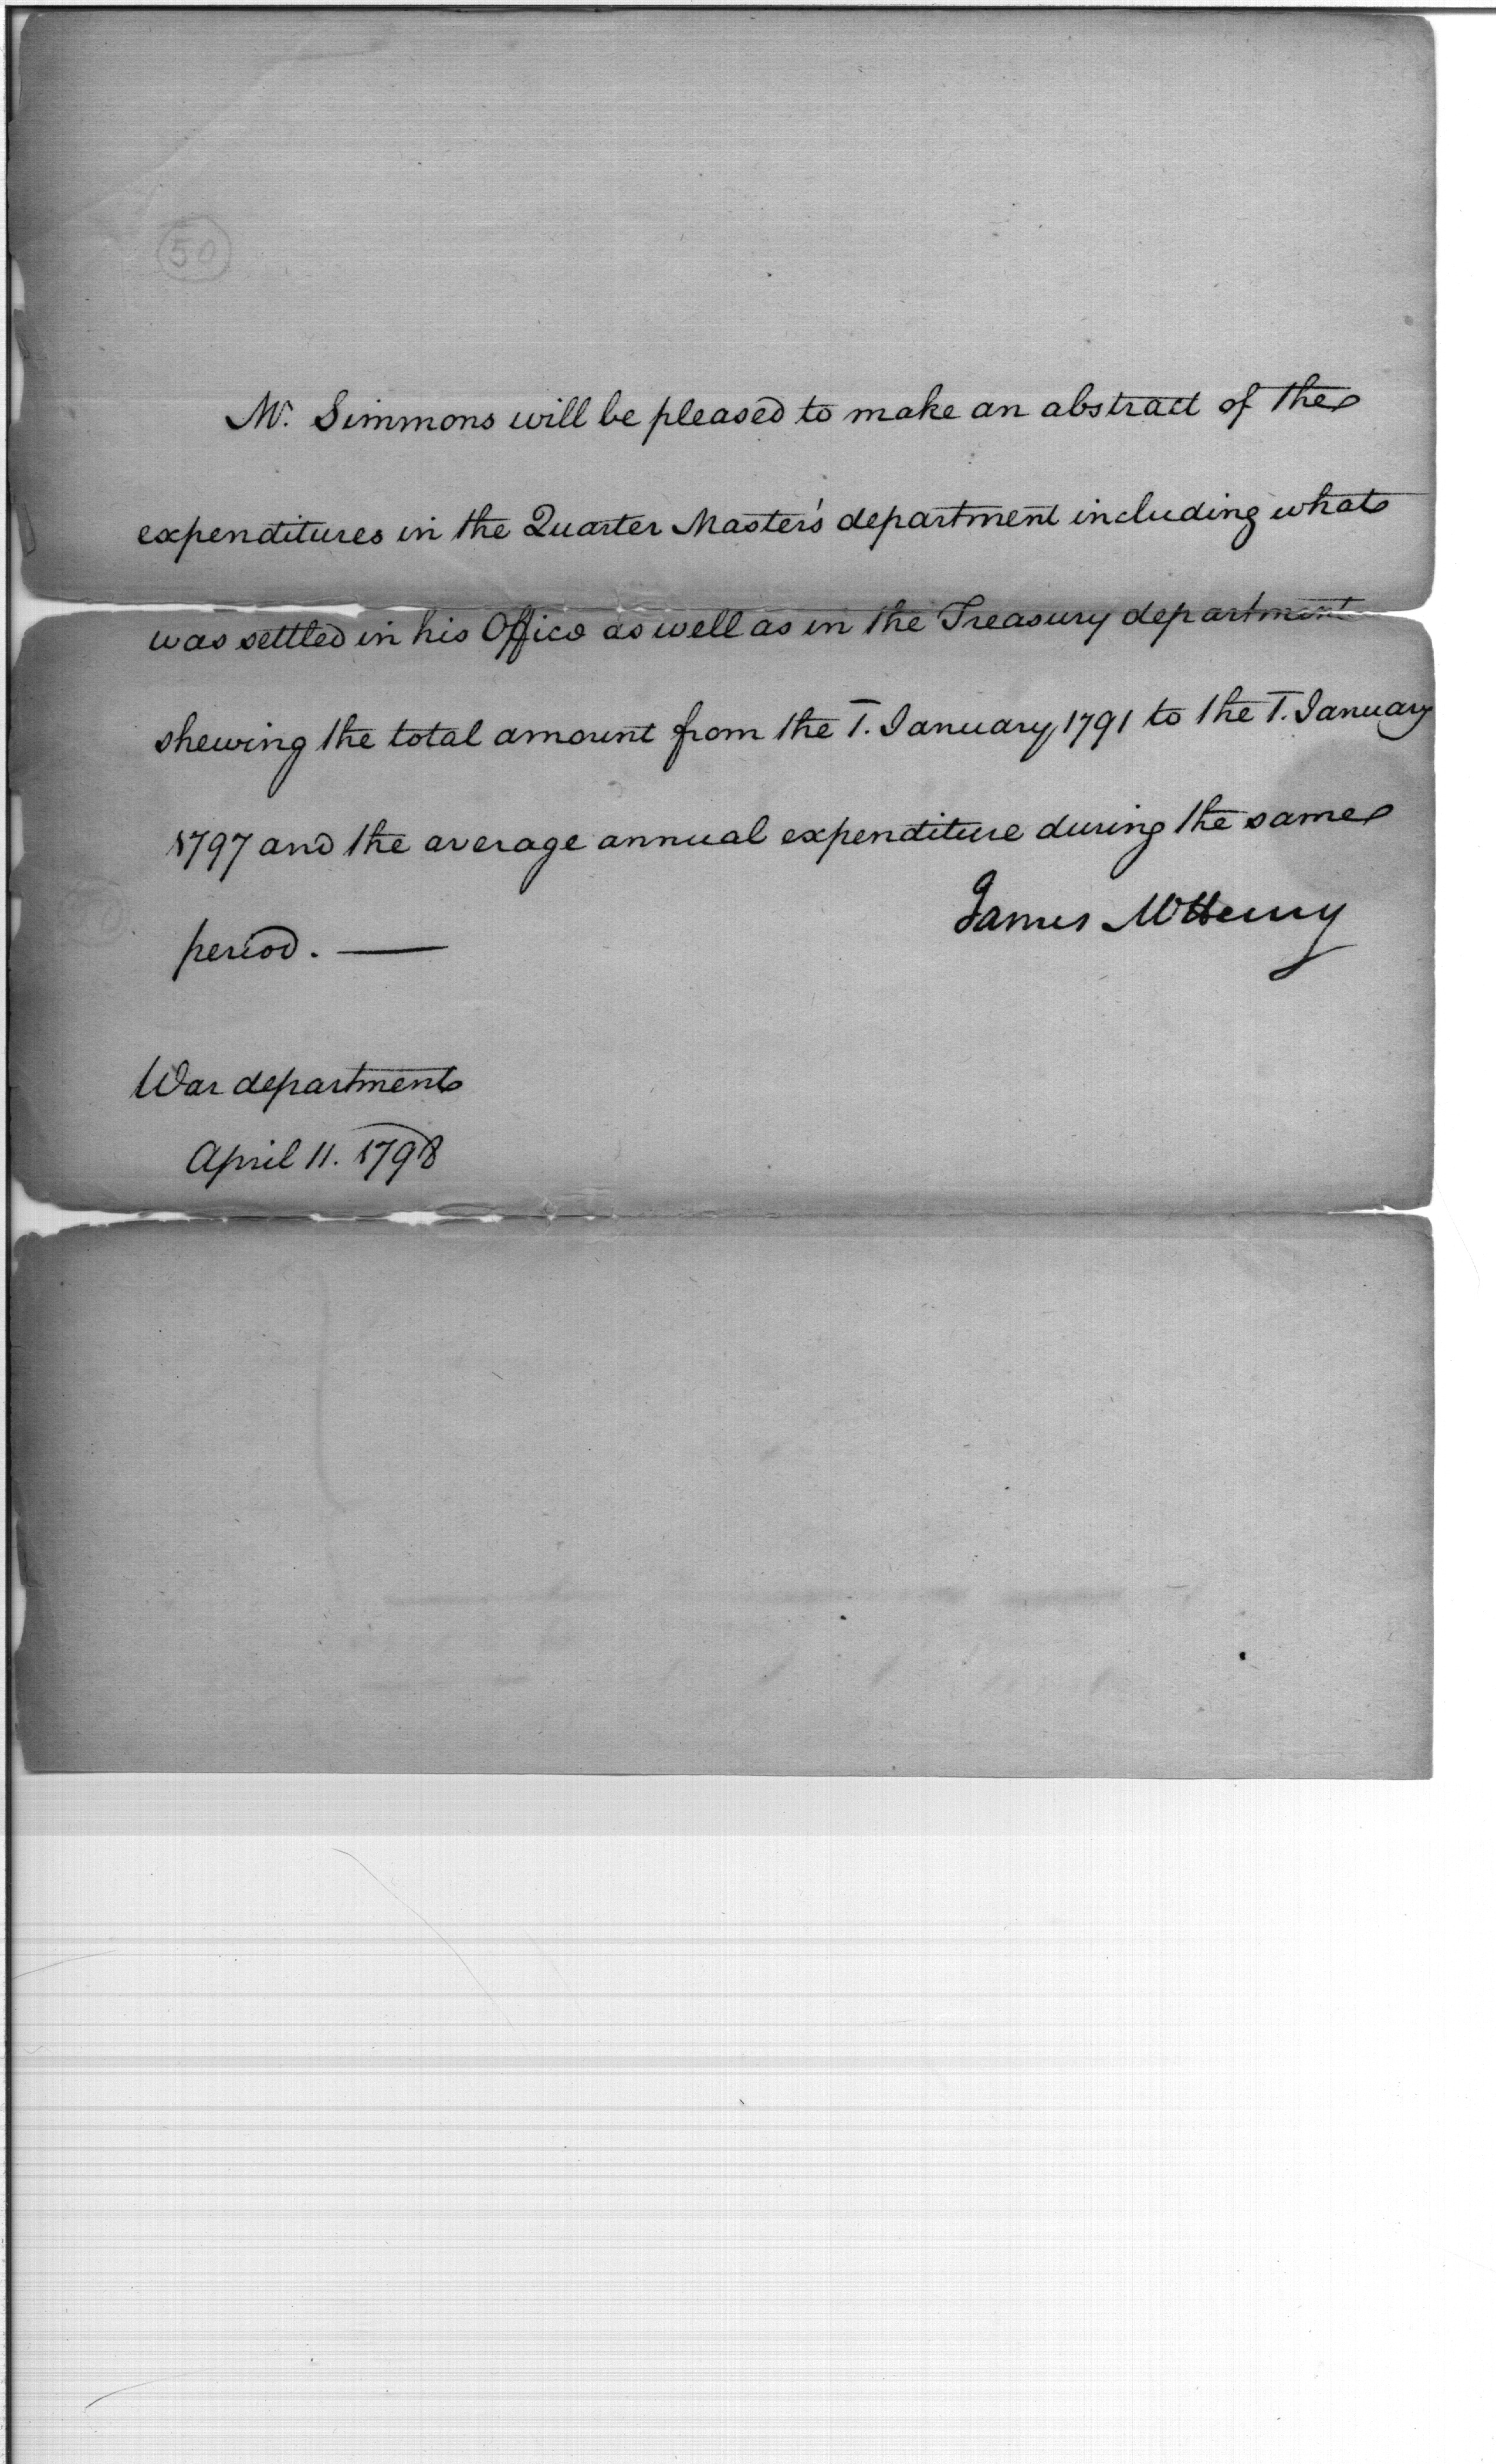 50
Mr. Simmons will be pleased to make an abstract of the
expenditures in the Quarter Master's department including what
was settled in his Office as well as in the Treasury department
shewing the total amount from the 1. January, 1791 to the 1. January
1797 and the average annual expenditure during the same
period. —
James McHenry
War department
April 11. 1798